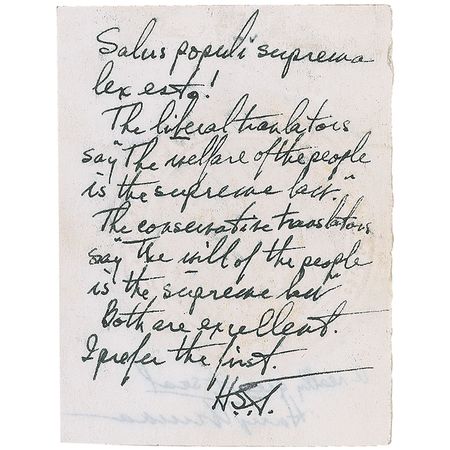 Salus populi suprema
lex esto!
The liberal translators
say "The welfare of the people
is the supreme law."
The conservative translators
say "The will of the people
is the supreme law"
Both are excellent.
I prefer the first.
H.S.T.